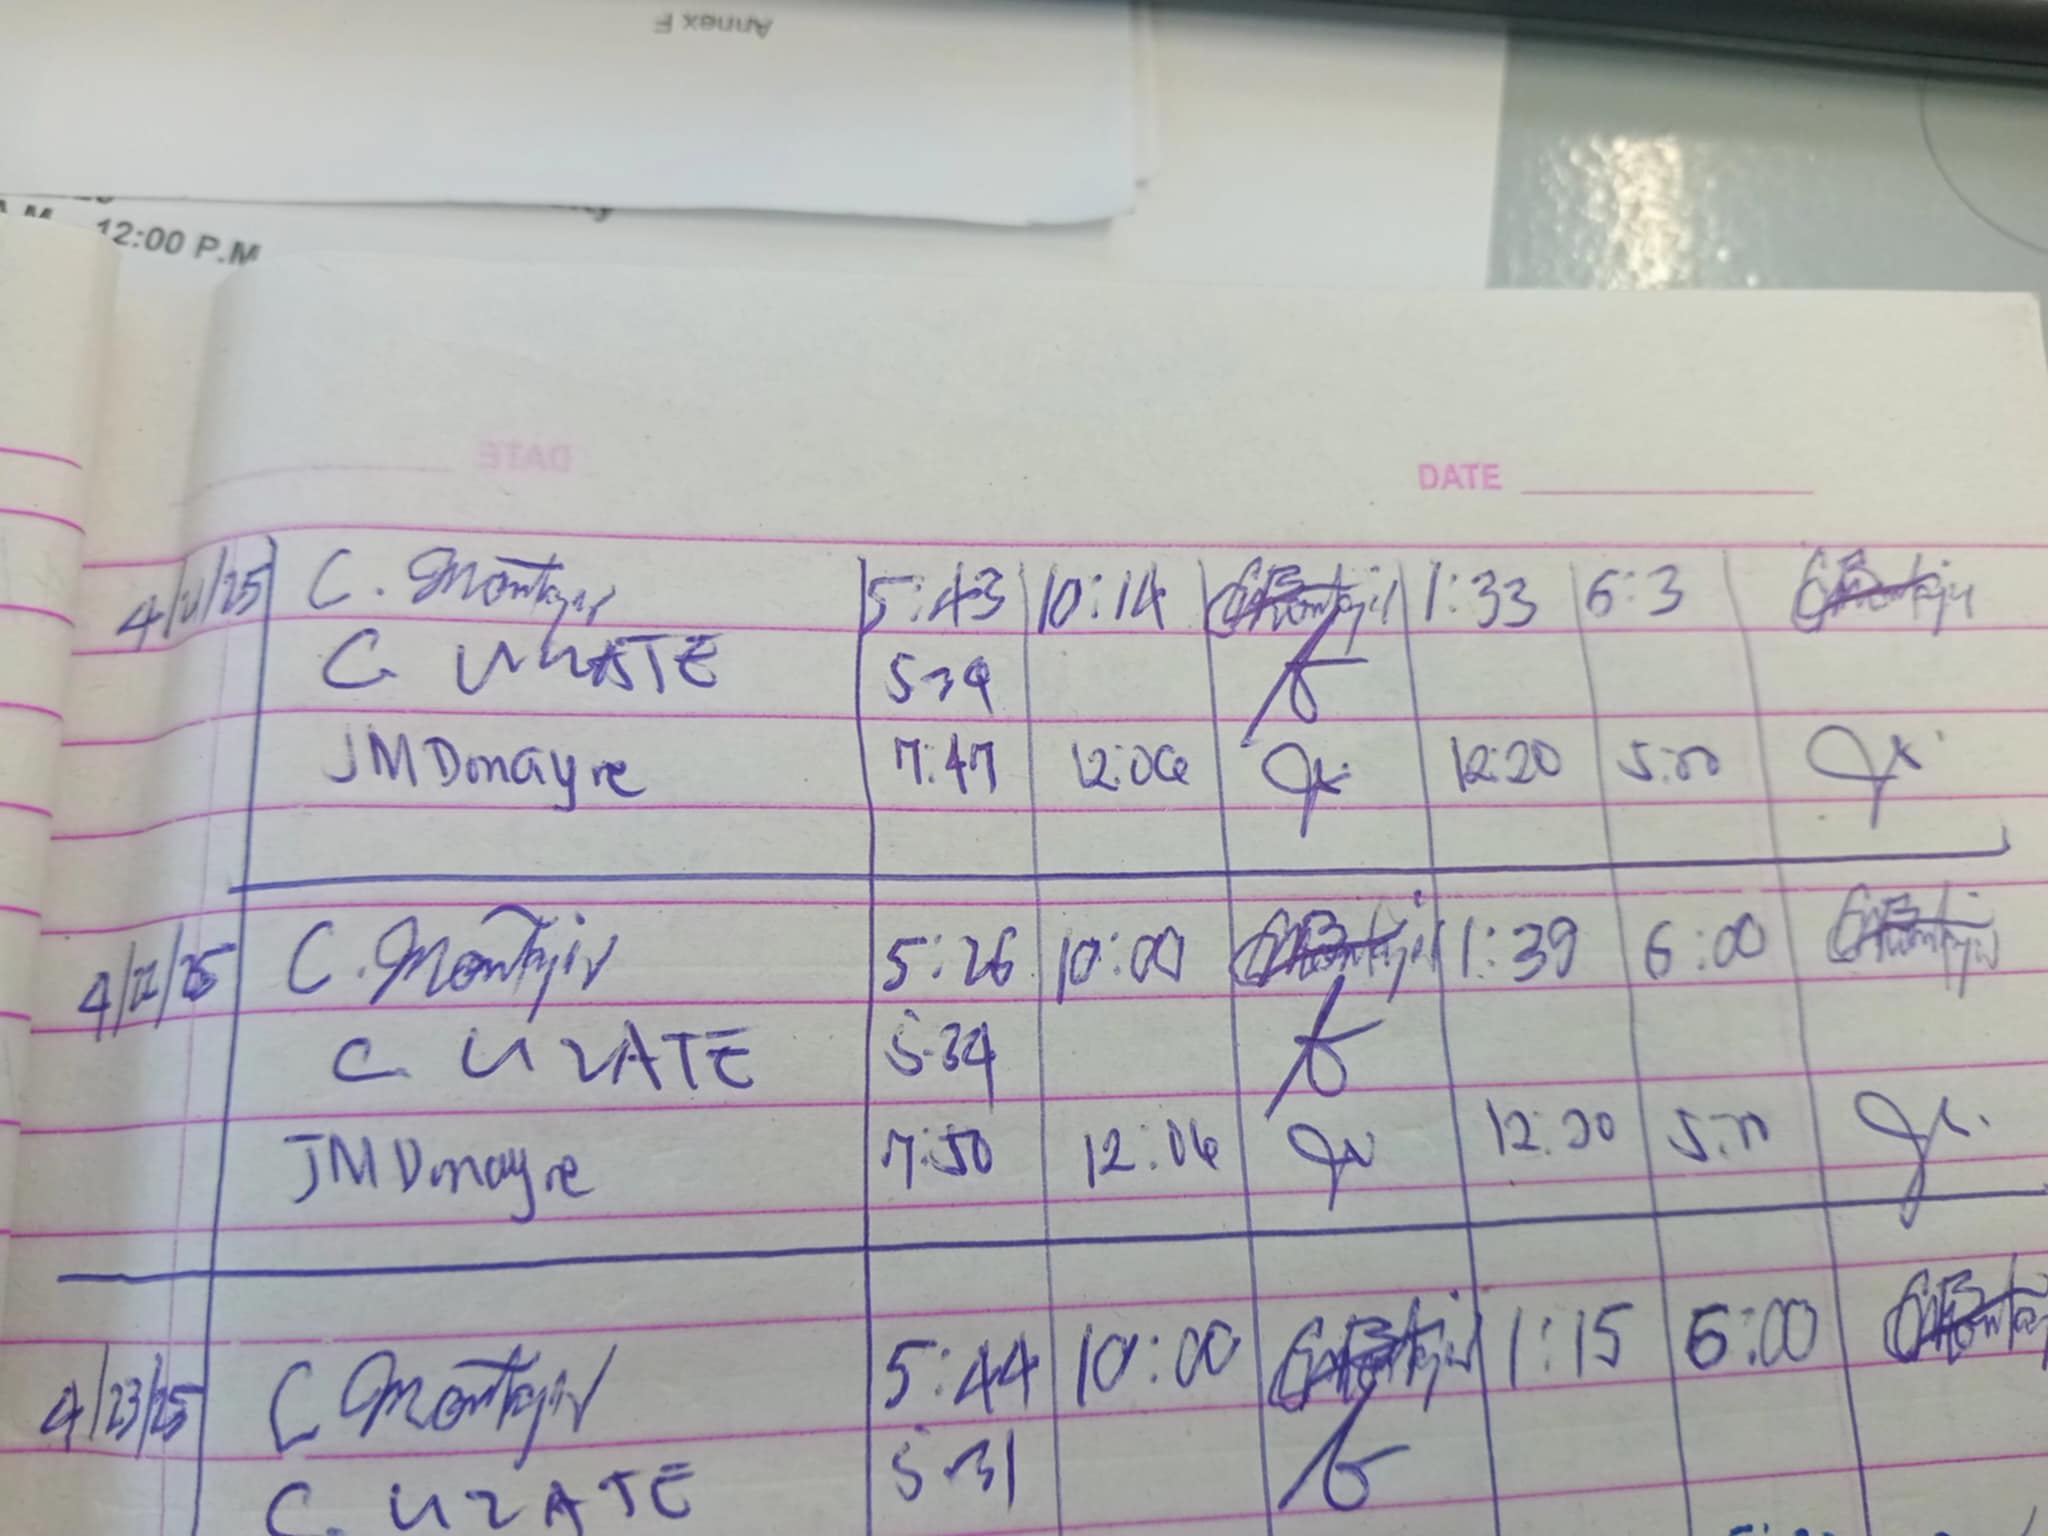 Annex F
A.M. 12:00 P.M
DATE
4/21/25 C. Montajir 5:43 10:14 1:33 6:3
C. UZATE 5:39
JMDonayre 7:47 12:06 12:20 5:00
4/22/25 C. Montajir 5:26 10:00 1:39 6:00
C. UZATE 5:34
JMDonayre 7:50 12:06 12:20 5:00
4/23/25 C Montajir 5:44 10:00 1:15 6:00
C. UZATE 5:31